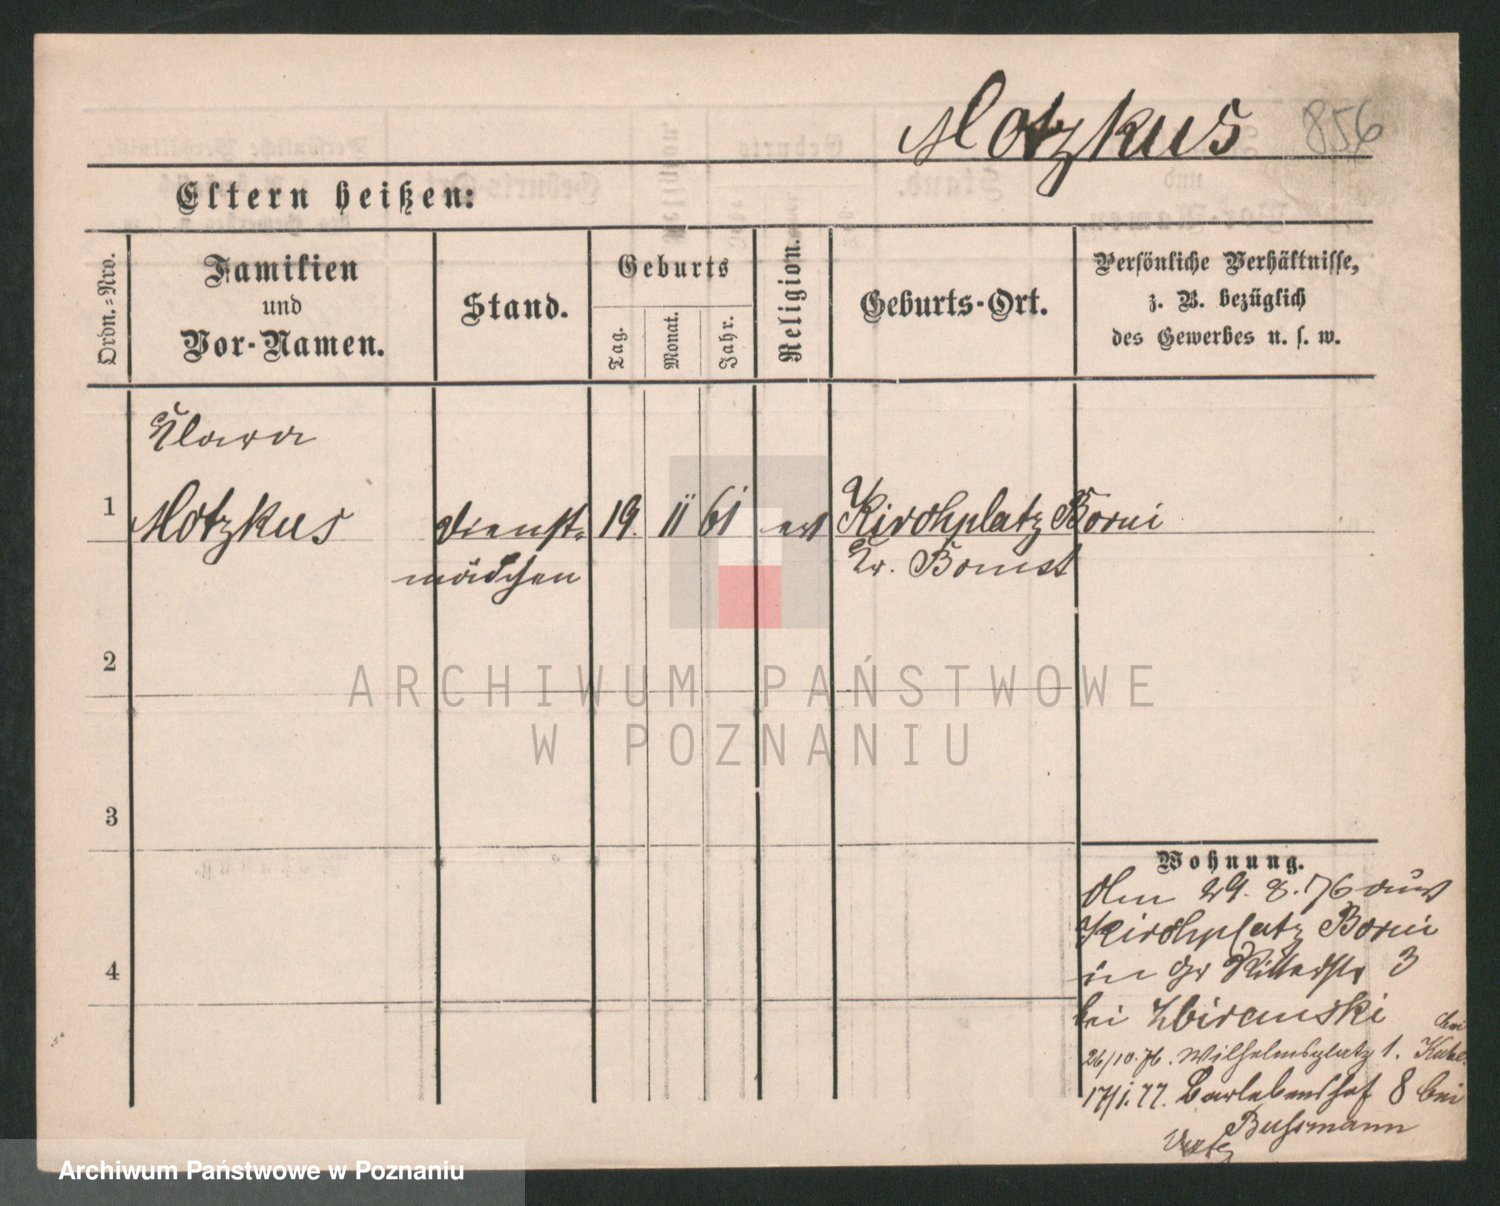 Motzkus 856
Eltern heißen:
Ordn.=Nro.
Familien
und
Vor-Namen.
Stand.
Geburts
Tag.
Monat.
Jahr.
Religion.
Geburts-Ort.
Persönliche Verhältnisse,
z. B. bezüglich
des Gewerbes u. s. w.
Klara
1 Motzkus Dienst= 19. 11 61 ev Kirchplatz Borui
mädchen Kr. Bomst
2
ARCHIWUM PAŃSTWOWE
W POZNANIU
3
4
Wohnung.
29. 8. 76 aus
Kirchplatz Borui
in Gr Ritterstr 3
bei Zbiranski
26/10. 76. Wilhelmsplatz 1. bei
17/1. 77. Berlebenshof 8 bei
Bußmann
Archiwum Państwowe w Poznaniu